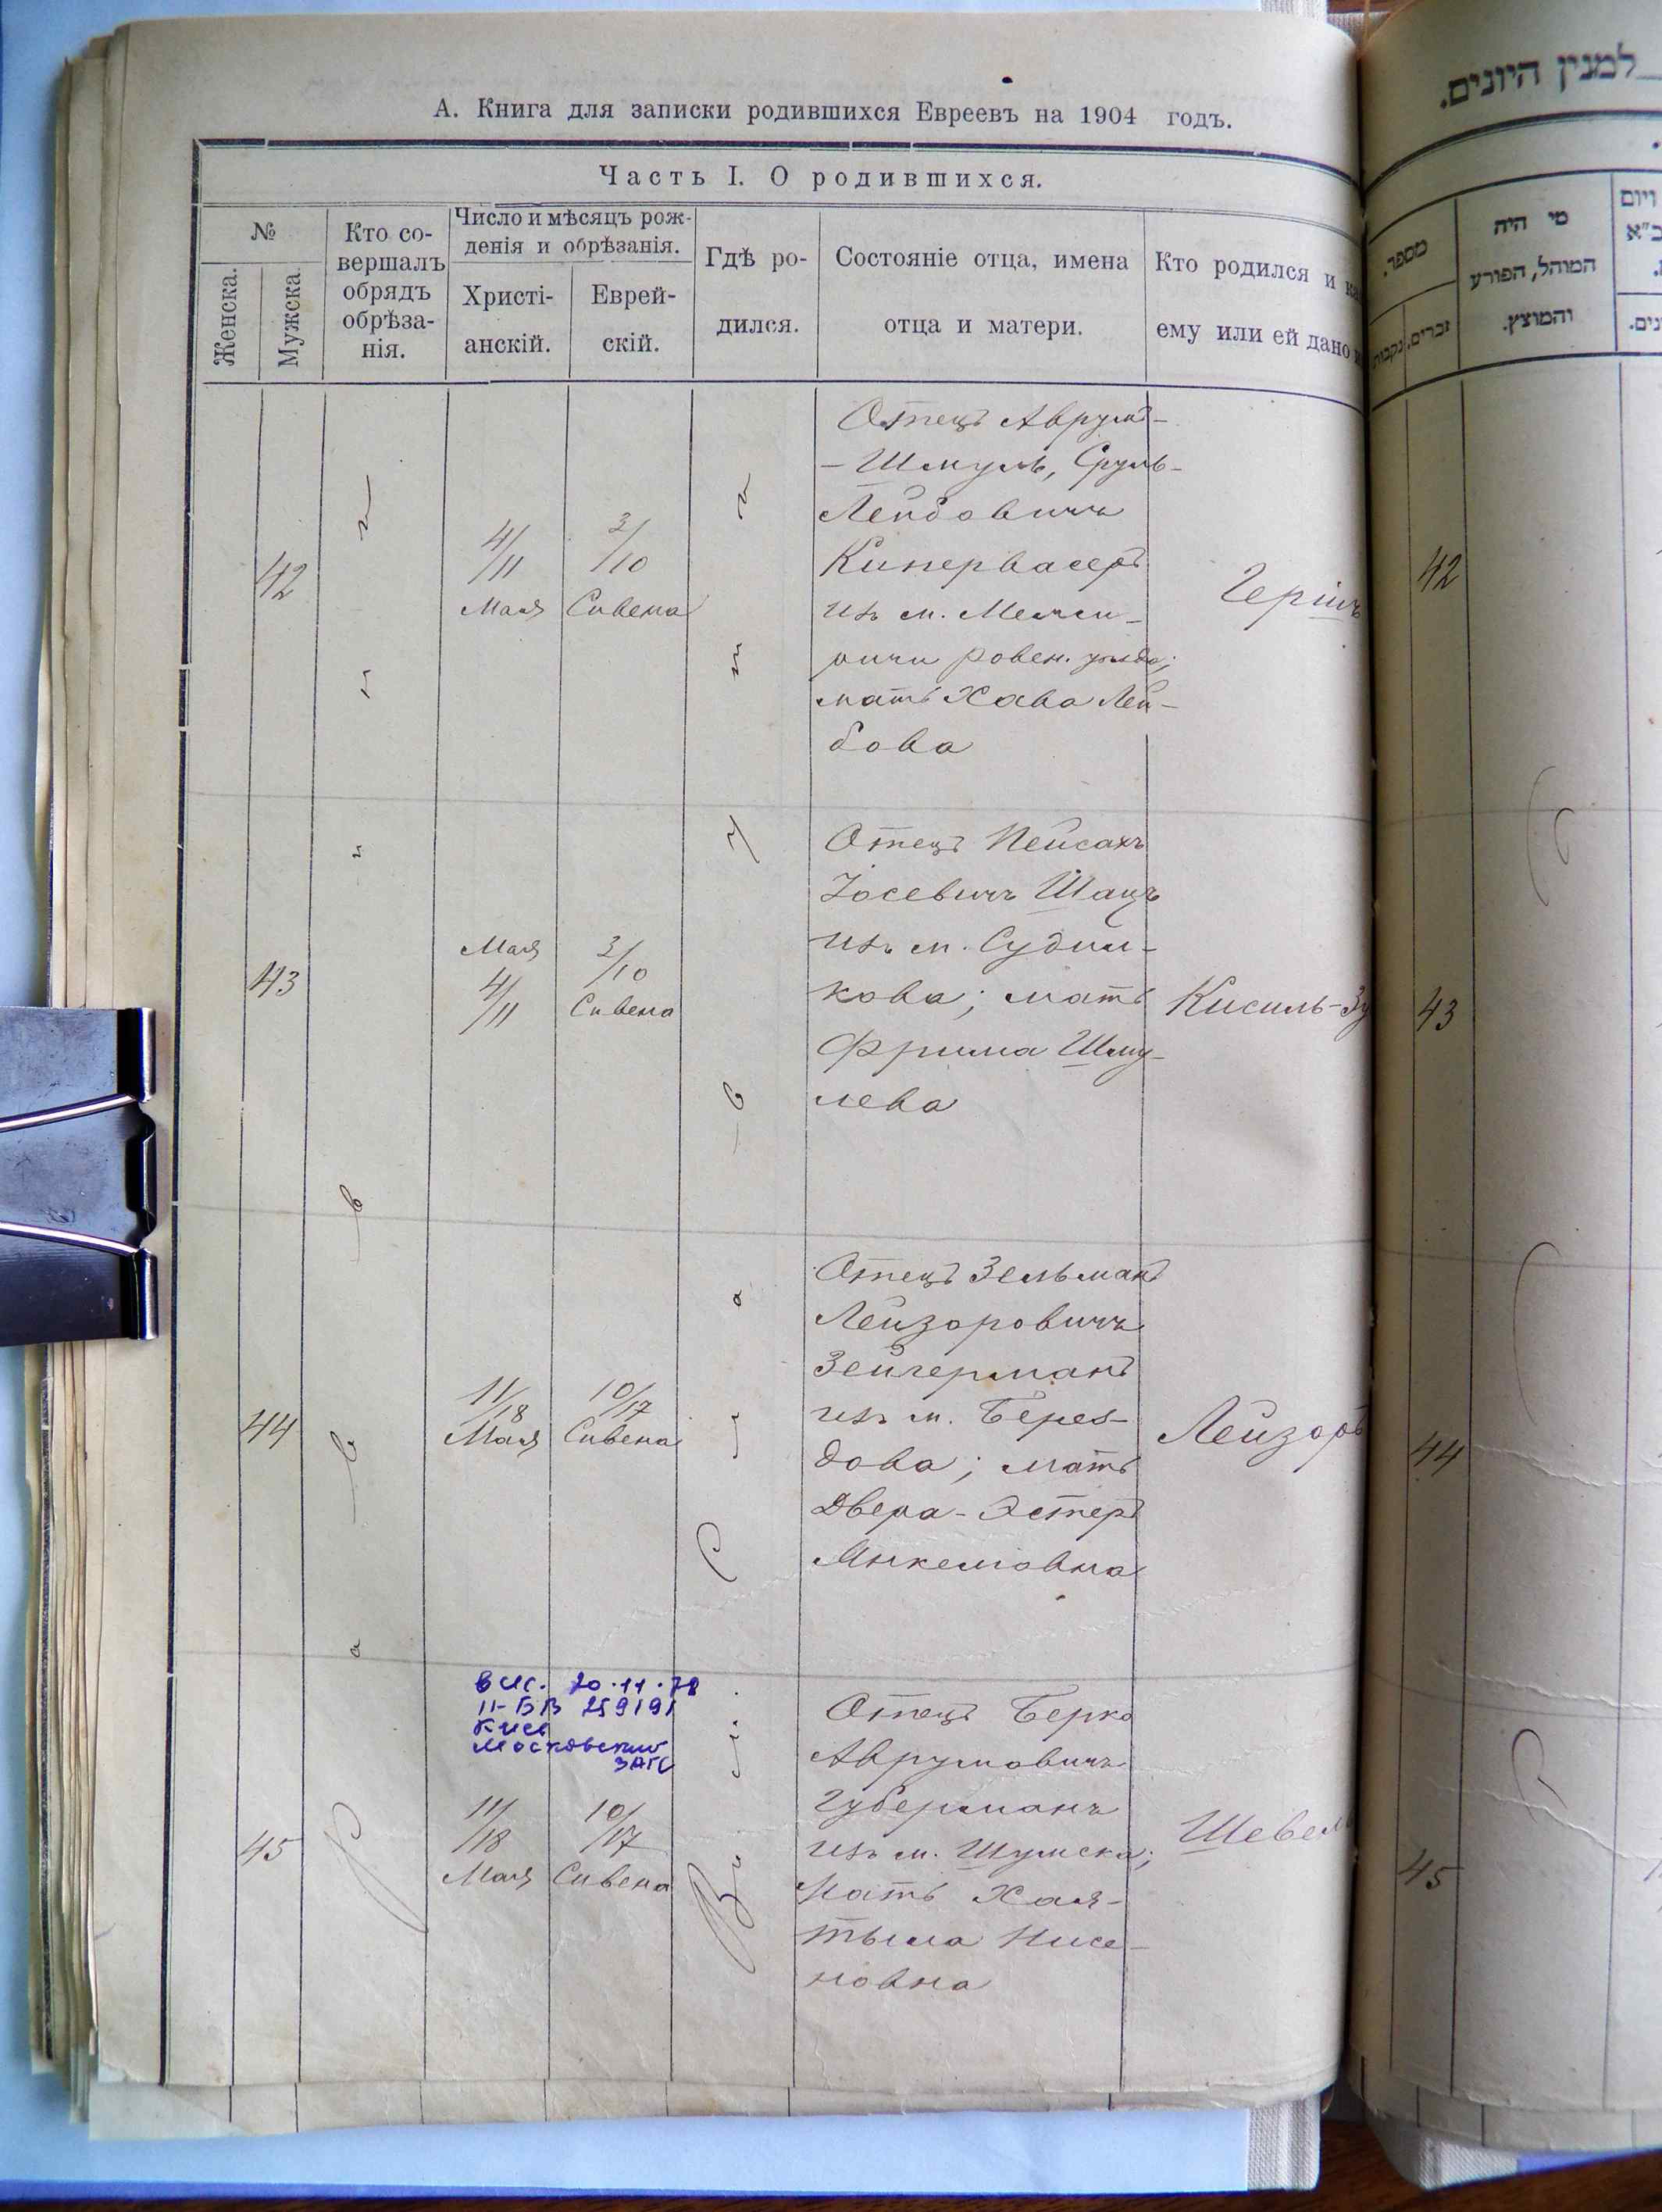 А. Книга для записки родившихся Евреевъ на 1904 годъ.
Часть I. О родившихся.
№
Женска.
Мужска.
Кто со-
вершалъ
обрядъ
обрѣза-
нія.
Число и мѣсяцъ рож-
денія и обрѣзанія.
Христі-
анскій.
Еврей-
скій.
Гдѣ ро-
дился.
Состояніе отца, имена
отца и матери.
Кто родился и
ему или ей дано
42
4/11
Мая
3/10
Сивена
Отецъ Аврумъ-
-Шмуль, Сруль-
Лейбовичъ
Кипервасеръ
изъ м. Межи-
ричи ровен. уѣзда;
мать Хава Лей-
бова
Гершъ
43
Мая
4/11
3/10
Сивена
Отецъ Пейсахъ
Іосевичъ Шацъ
изъ м. Судил-
кова; мать
Фрима Шму-
лева
Кисиль-Зу
44
11/18
Мая
10/17
Сивена
Отецъ Зельманъ
Лейзоровичъ
Зейгерманъ
изъ м. Берез-
дова; мать
Двера-Эстеръ
Янкелювна
Лейзоръ
20.11.78
II-БВ 259191
Киев
Московский
ЗАГС
45
11/18
Мая
10/17
Сивена
Отецъ Берко
Аврумовичъ
Губерманъ
изъ м. Шумска;
Мать Хая-
тыла Нисе-
новна
Шевель
למנין היונים.
מספר.
זכרים.
נקבות
מי היה
המוהל, הפורע
והמוצץ.
ויום
42
43
44
45